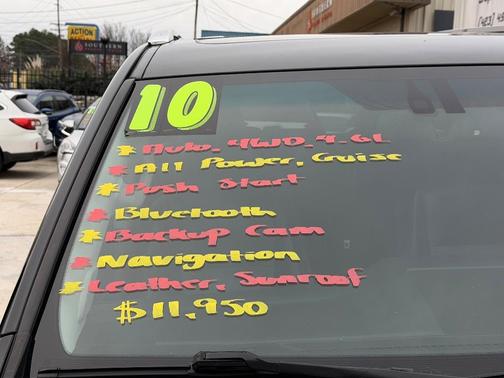 ACTION
SOUTHERN
10
* Auto, 4WD, 4.6L
* All Power, Cruise
* Push Start
* Bluetooth
* Backup Cam
* Navigation
* Leather, Sunroof
$11,950